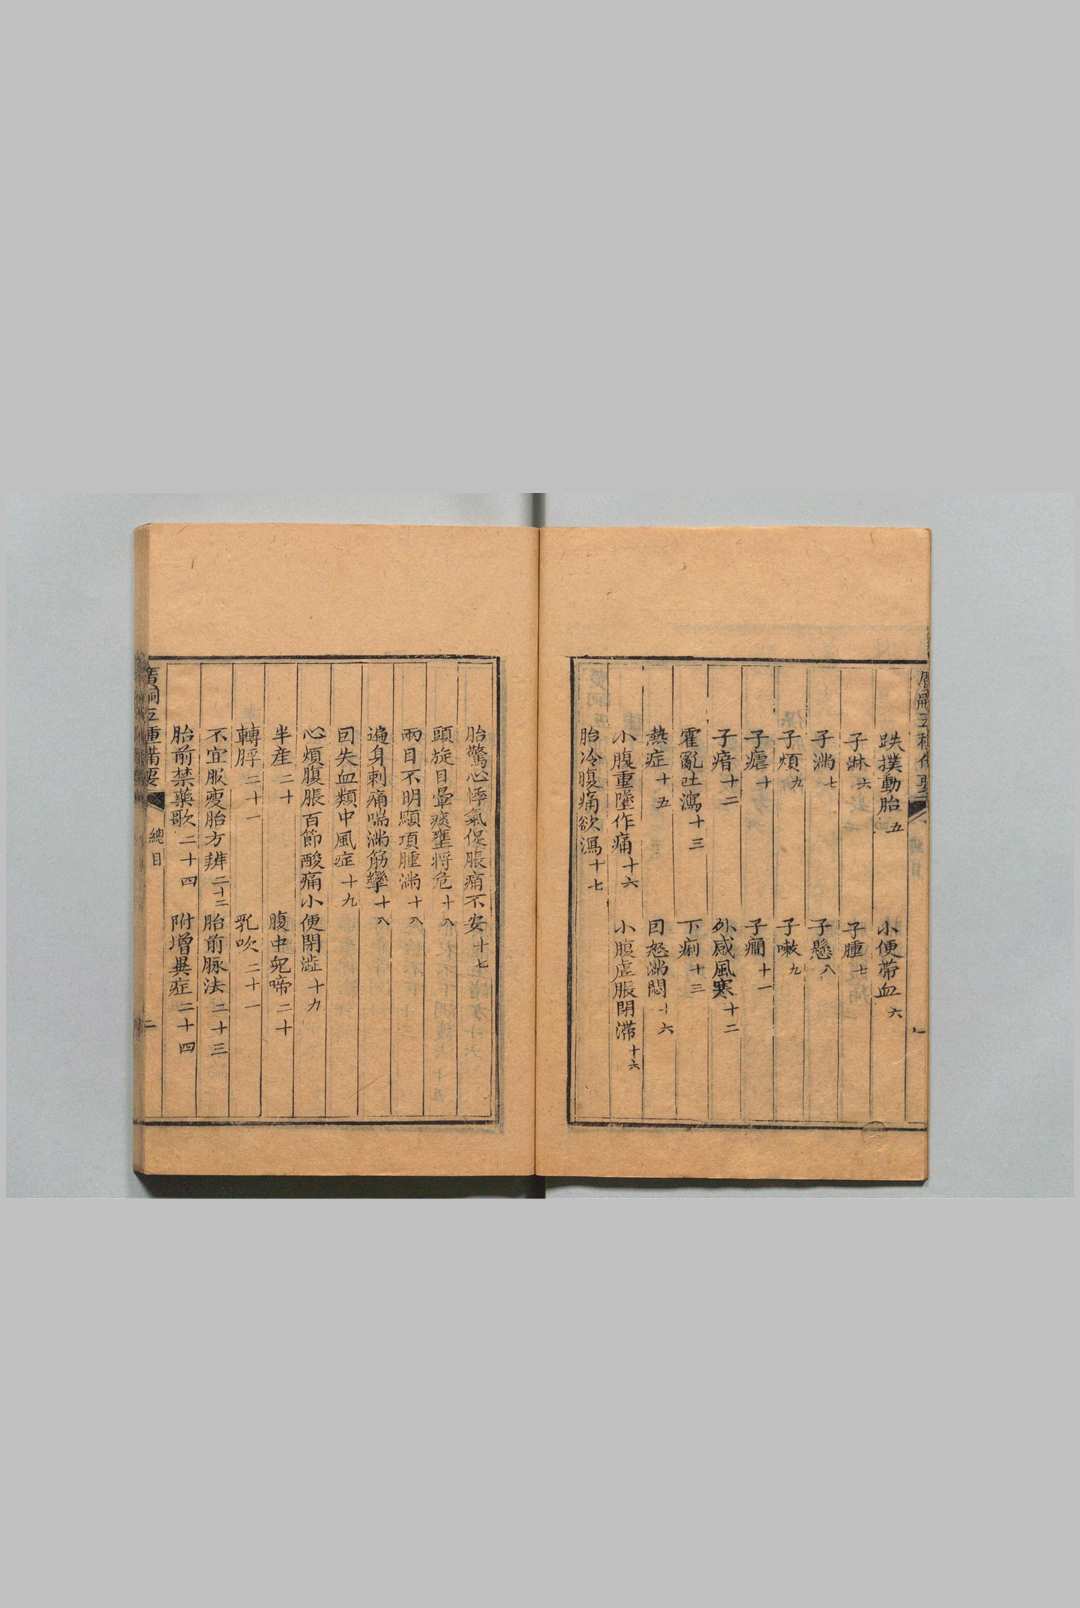 跌撲動胎 五　小便帶血 六
子淋 六　子腫 七
子滿 七　子懸 八
子煩 九　子嗽 九
子瘧 十　子癇 十一
子瘖 十二　外感風寒 十二
霍亂吐瀉 十三　下痢 十三
熱症 十五　因怒滿悶 十六
小腹重墜作痛 十六　小腹虛脹閉滯 十六
胎冷腹痛欲瀉 十七
胎驚心悸氣保脹痛不安 十七
頭旋目暈痰壅將危 十八
兩目不明顋項腫滿 十八
遍身刺痛喘滿筋攣 十八
因失血類中風症 十九
心煩腹脹百節酸痛小便閉澁 十九
半產 二十　腹中兒啼 二十
轉脬 二十一　乳吹 二十一
不宜服瘦胎方辨 二十二　胎前脈法 二十三
胎前禁藥歌 二十四　附增異症 二十四
廣嗣五種備要　總目　二